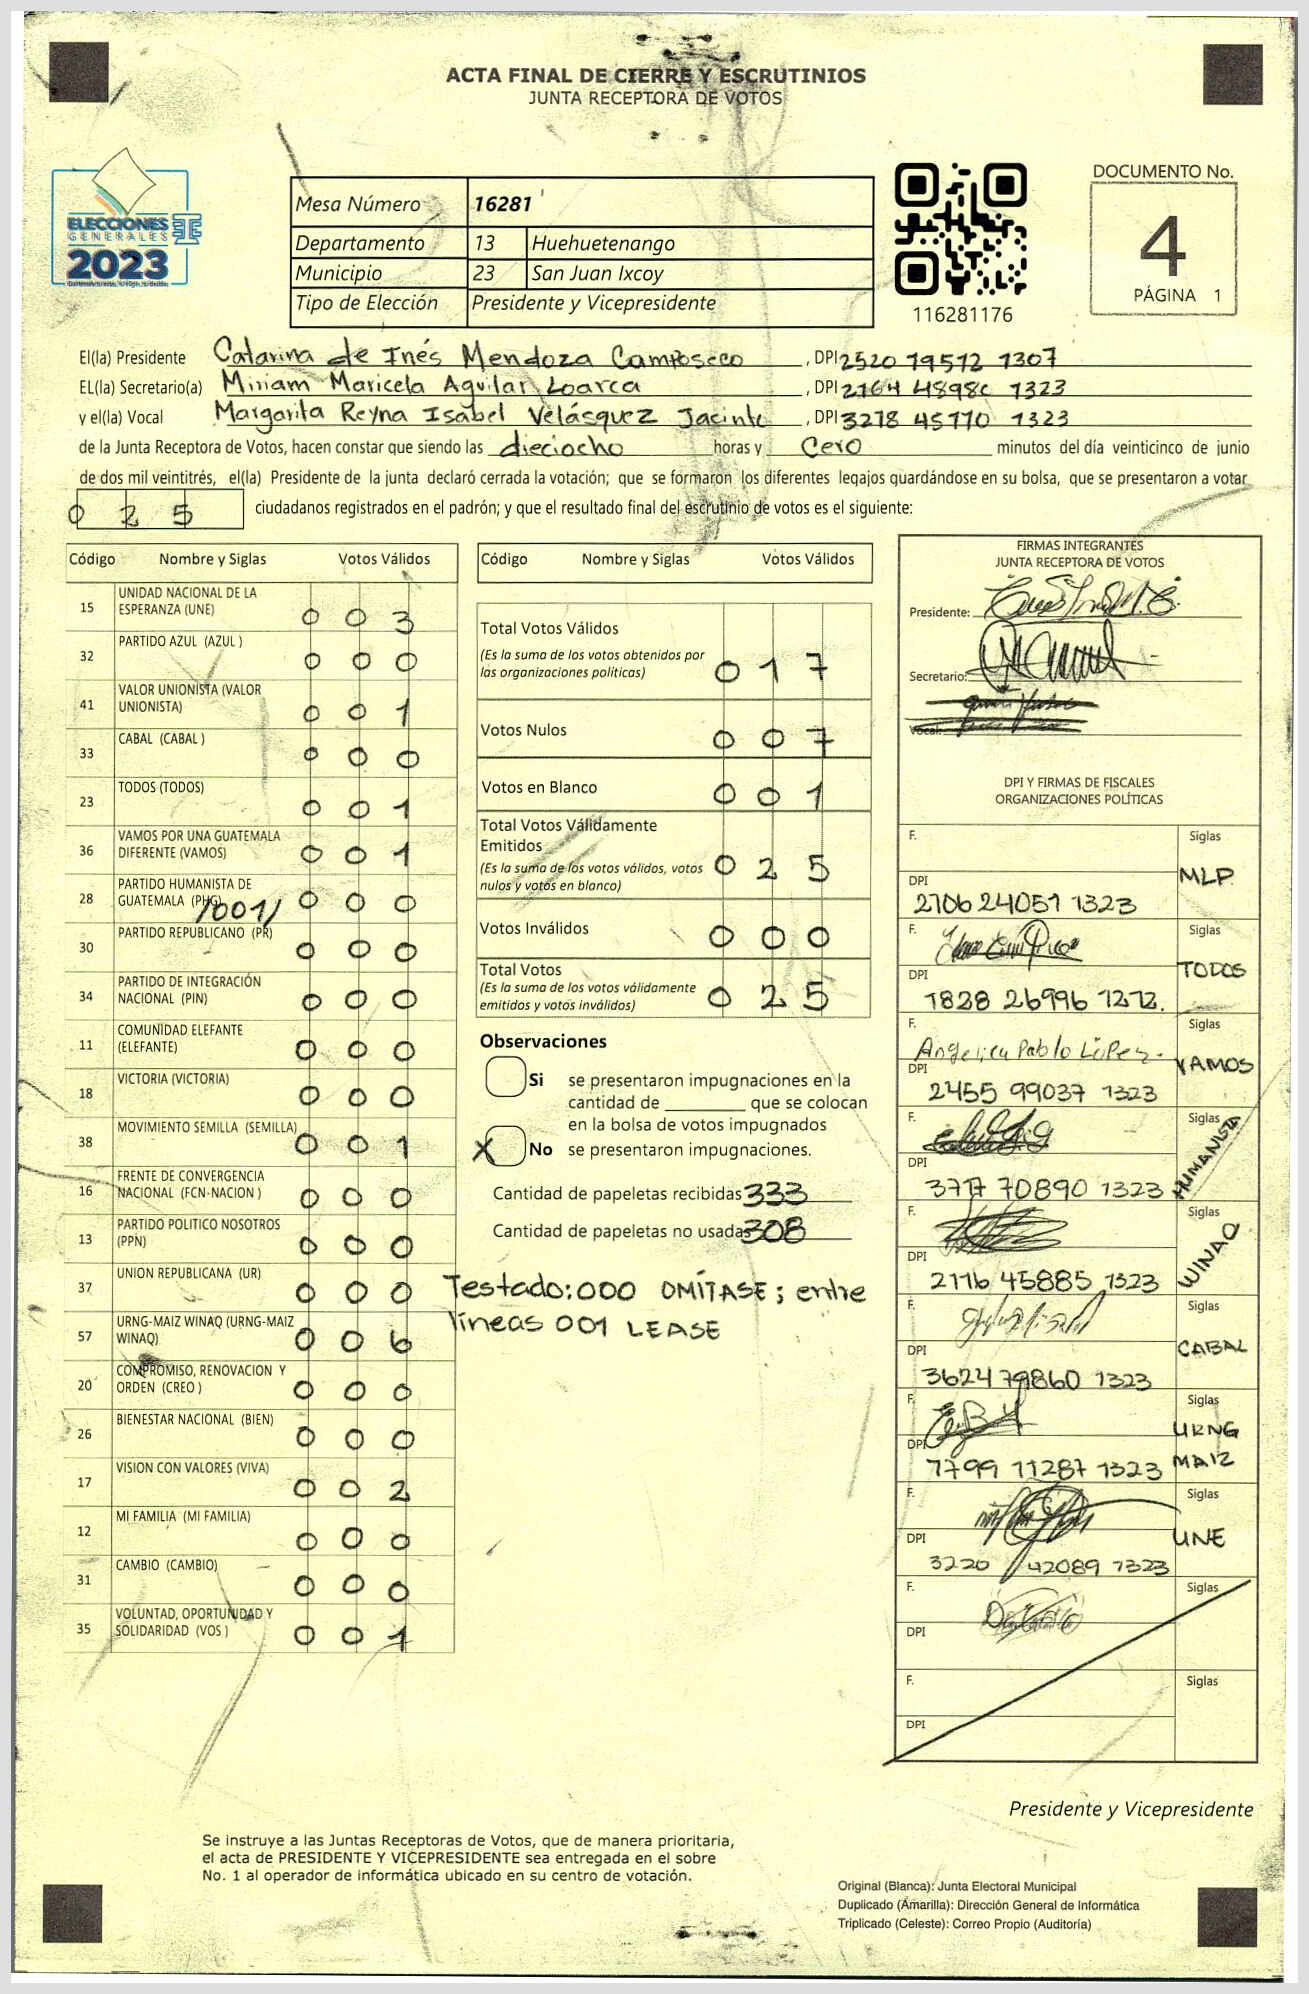 ACTA FINAL DE CIERRE Y ESCRUTINIOS
JUNTA RECEPTORA DE VOTOS
ELECCIONES
GENERALES
2023
Mesa Número 16281
Departamento 13 Huehuetenango
Municipio 23 San Juan Ixcoy
Tipo de Elección Presidente y Vicepresidente
116281176
DOCUMENTO No.
4
PÁGINA 1
El(la) Presidente Catarina de Inés Mendoza Camposeco, DPI 2520 19512 1307
EL(la) Secretario(a) Miriam Maricela Aguilar Loarca, DPI 2164 48980 1323
y el(la) Vocal Margarita Reyna Isabel Velásquez Jacinto, DPI 3278 45770 1323
de la Junta Receptora de Votos, hacen constar que siendo las dieciocho horas y cero minutos del día veinticinco de junio
de dos mil veintitrés, el(la) Presidente de la junta declaró cerrada la votación; que se formaron los diferentes legajos guardándose en su bolsa, que se presentaron a votar
0 2 5 ciudadanos registrados en el padrón; y que el resultado final del escrutinio de votos es el siguiente:
Código Nombre y Siglas Votos Válidos
15 UNIDAD NACIONAL DE LA ESPERANZA (UNE) 0 0 3
32 PARTIDO AZUL (AZUL ) 0 0 0
41 VALOR UNIONISTA (VALOR UNIONISTA) 0 0 1
33 CABAL (CABAL ) 0 0 0
23 TODOS (TODOS) 0 0 1
36 VAMOS POR UNA GUATEMALA DIFERENTE (VAMOS) 0 0 1
28 PARTIDO HUMANISTA DE GUATEMALA (PHG) /001/ 0 0 0
30 PARTIDO REPUBLICANO (PR) 0 0 0
34 PARTIDO DE INTEGRACIÓN NACIONAL (PIN) 0 0 0
11 COMUNIDAD ELEFANTE (ELEFANTE) 0 0 0
18 VICTORIA (VICTORIA) 0 0 0
38 MOVIMIENTO SEMILLA (SEMILLA) 0 0 1
16 FRENTE DE CONVERGENCIA NACIONAL (FCN-NACION ) 0 0 0
13 PARTIDO POLITICO NOSOTROS (PPN) 0 0 0
37 UNION REPUBLICANA (UR) 0 0 0
57 URNG-MAIZ WINAQ (URNG-MAIZ WINAQ) 0 0 6
20 COMPROMISO, RENOVACION Y ORDEN (CREO ) 0 0 0
26 BIENESTAR NACIONAL (BIEN) 0 0 0
17 VISION CON VALORES (VIVA) 0 0 2
12 MI FAMILIA (MI FAMILIA) 0 0 0
31 CAMBIO (CAMBIO) 0 0 0
35 VOLUNTAD, OPORTUNIDAD Y SOLIDARIDAD (VOS ) 0 0 1
Código Nombre y Siglas Votos Válidos
Total Votos Válidos 0 1 7
(Es la suma de los votos obtenidos por
las organizaciones políticas)
Votos Nulos 0 0 7
Votos en Blanco 0 0 1
Total Votos Válidamente
Emitidos 0 2 5
(Es la suma de los votos válidos, votos
nulos y votos en blanco)
Votos Inválidos 0 0 0
Total Votos 0 2 5
(Es la suma de los votos válidamente
emitidos y votos inválidos)
Observaciones
Si se presentaron impugnaciones en la
cantidad de ________ que se colocan
en la bolsa de votos impugnados
X No se presentaron impugnaciones.
Cantidad de papeletas recibidas 333
Cantidad de papeletas no usadas 308
Testado: 000 OMÍTASE; entre
líneas 001 LEASE
FIRMAS INTEGRANTES
JUNTA RECEPTORA DE VOTOS
Presidente:
Secretario:
Vocal:
DPI Y FIRMAS DE FISCALES
ORGANIZACIONES POLÍTICAS
F. Siglas
MLP
DPI
2106 24051 1323
F. Siglas
TODOS
DPI
1828 26996 1212.
F. Siglas
Angelica Pablo López
VAMOS
DPI
2455 99037 1323
F. Siglas
HUMANISTA
DPI
3717 70890 1323
F. Siglas
WINAQ
DPI
2116 45885 1323
F. Siglas
CABAL
DPI
3624 79860 1323
F. Siglas
URNG
MAIZ
DPI
1799 11287 1323
F. Siglas
UNE
DPI
3220 42089 1323
F. Siglas
DPI
F. Siglas
DPI
Presidente y Vicepresidente
Se instruye a las Juntas Receptoras de Votos, que de manera prioritaria,
el acta de PRESIDENTE Y VICEPRESIDENTE sea entregada en el sobre
No. 1 al operador de informática ubicado en su centro de votación.
Original (Blanca): Junta Electoral Municipal
Duplicado (Amarilla): Dirección General de Informática
Triplicado (Celeste): Correo Propio (Auditoría)